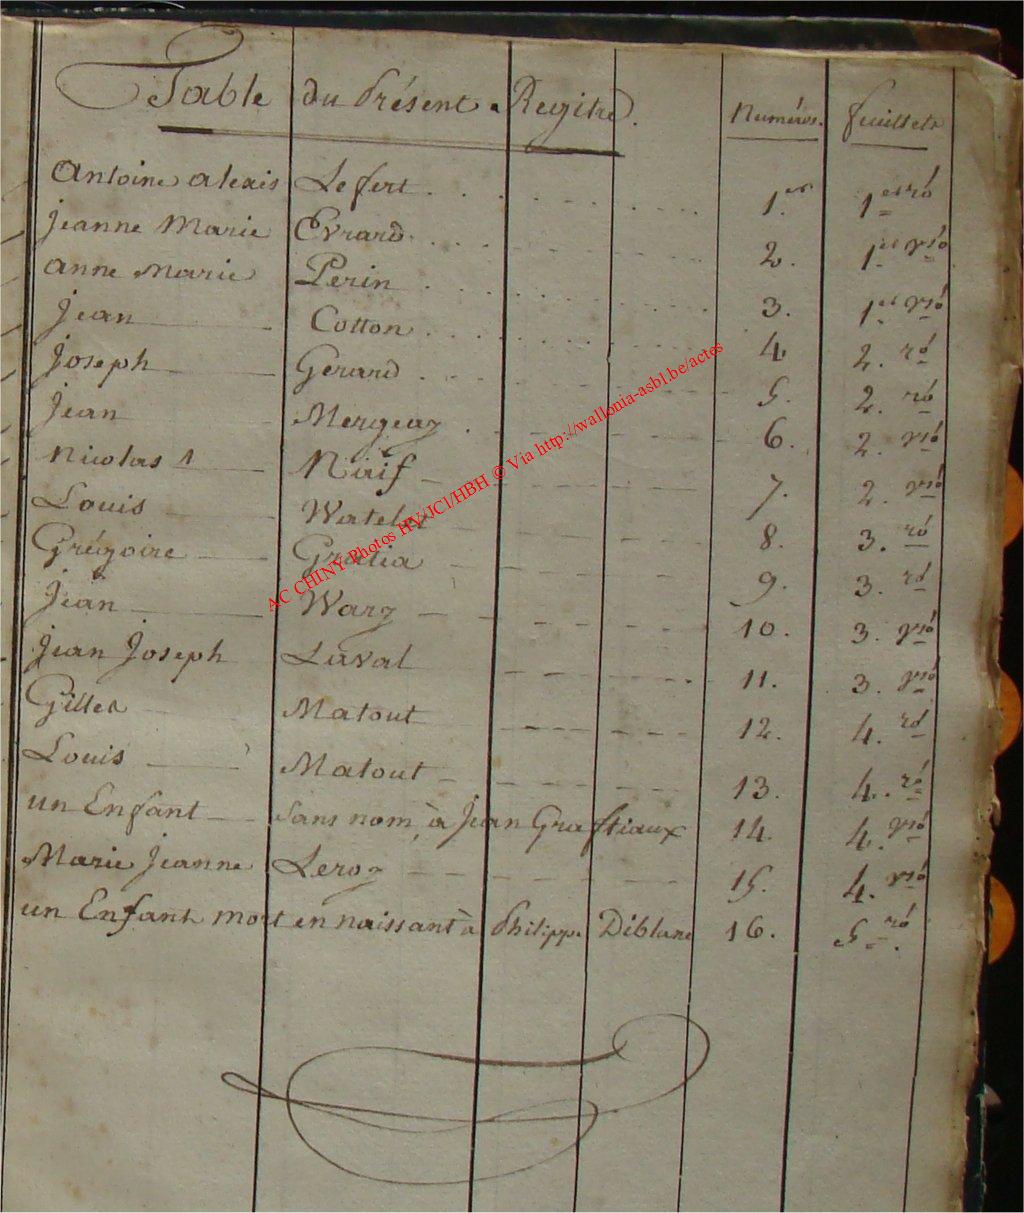 Table du Présent Regitre. Numéros. feuillets
Antoine alexis Lefert . . . . . . . . . 1.er 1er ró
Jeanne Marie Evrard. . . . . . . . . 2. 1er vsó
anne Marie Perin . . . . . . . . . 3. 1er vsó
Jean Cotton . . . . . . . . . 4 2. ró
Joseph Gerard . - - - - - 5. 2. ró
Jean Mergeay . - - - - - 6. 2. vsó
Nicolas Naif - - - - - 7. 2. vsó
Louis Watelet - - - - - 8. 3. ró
Grégoire Gratia - - - - - 9. 3. ró
Jean Warz - - - - - 10. 3. vsó
Jean Joseph Laval - - - - - 11. 3. vsó
Gilles Matout - - - - - 12. 4. ró
Louis Matout - - - - - 13. 4. ró
un Enfant sans nom, à Jean Graftiaux 14. 4. vsó
Marie Jeanne Leroy - - - - - 15. 4. vsó
un Enfant mort en naissant à Philippe Diblanc 16. 5. ró
AC CHINY-Photos HV/JCl/HBH © Via http://wallonia-asbl.be/actes